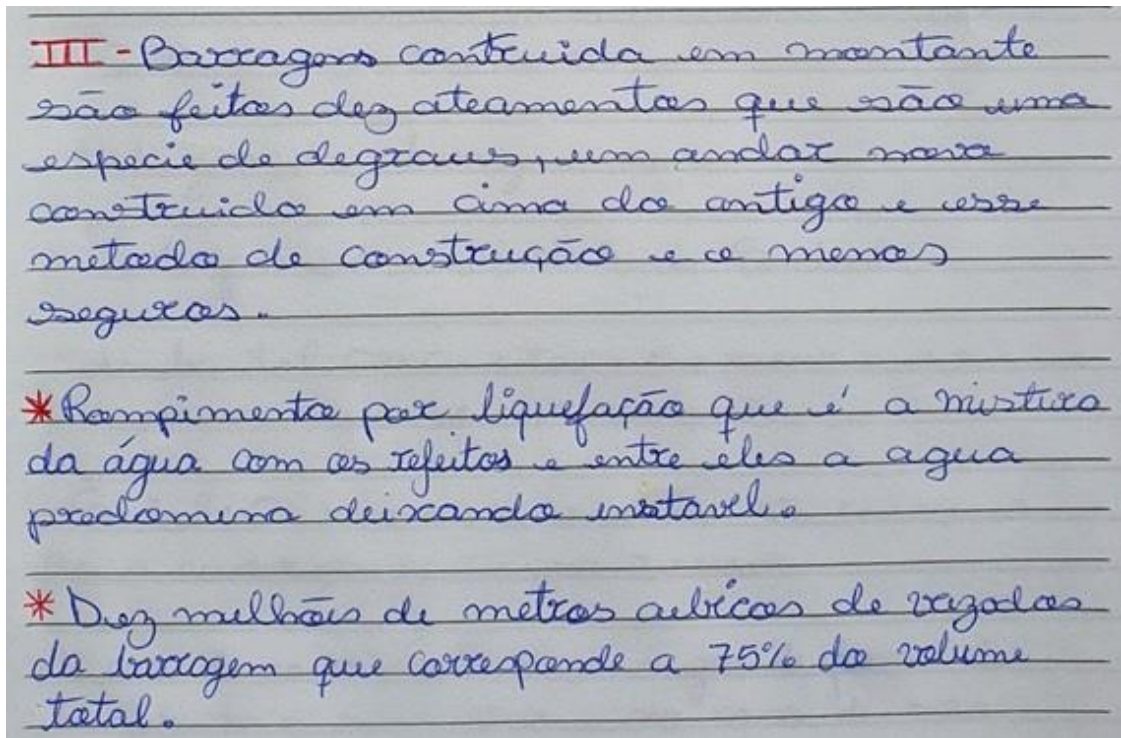 III - Barragens contruida em montante
são feitos dez ateamentos que são uma
especie de degraus, um andar novo
construido em cima do antigo e esse
metodo de construção e o menos
seguros.
* Rompimento por liquefação que é a mistura
da água com os rejeitos e entre eles a agua
predomina deixando instavel.
* Dez milhões de metros cubicos de vazados
da barragem que corresponde a 75% do volume
total.